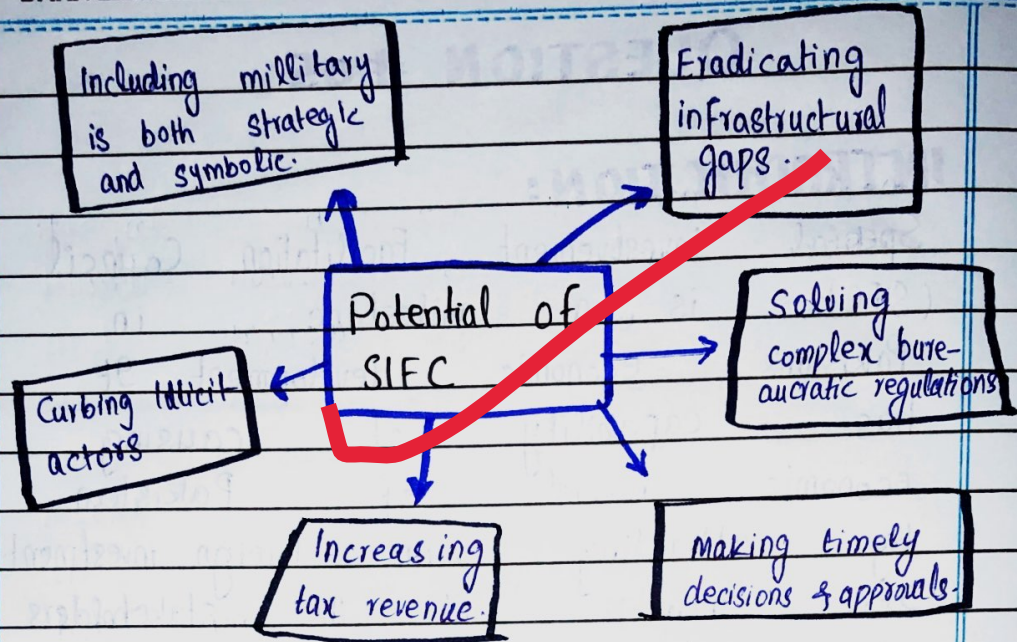 Including millitary
is both strategic
and symbolic.
Eradicating
infrastructural
gaps.
Potential of
SIFC
Solving
complex bure-
aucratic regulations
Curbing
actors
Increasing
tax revenue.
Making timely
decisions & approvals.